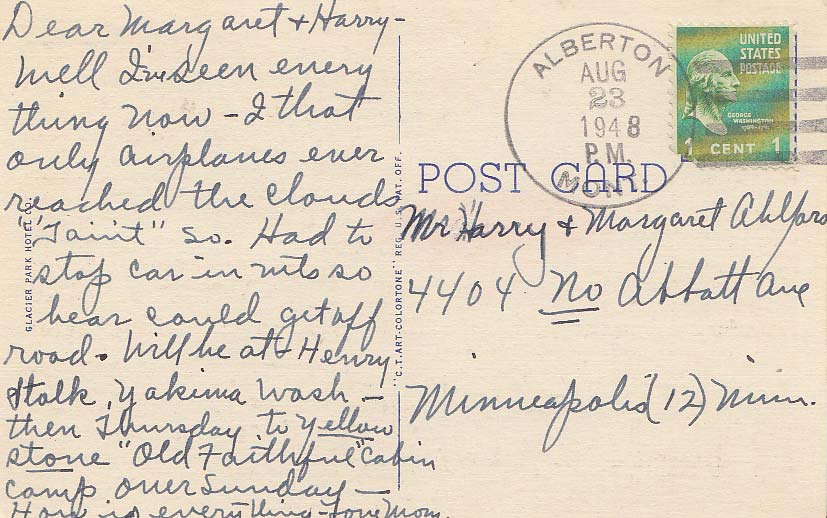 Dear Margaret & Harry-
Well I've seen every
thing now - I that
only airplanes ever
reached the clouds
"Taint" so. Had to
stop car in mts so
bear could get off
road. Will be at Henry
Stalk, Yakima Wash -
then Thursday to Yellow
stone "Old Faithful" Cabin
camp over Sunday -
How is everything - Love Mom.
GLACIER PARK HOTEL CO.
"C.T. ART-COLORTONE" REG. U.S. PAT. OFF.
POST CARD
ALBERTON
AUG
23
1948
P.M.
MONT
UNITED
STATES
POSTAGE
GEORGE
WASHINGTON
1 CENT 1
Mr Harry & Margaret Ahlfors
4404 No Abbott Ave
Minneapolis (12) Minn.